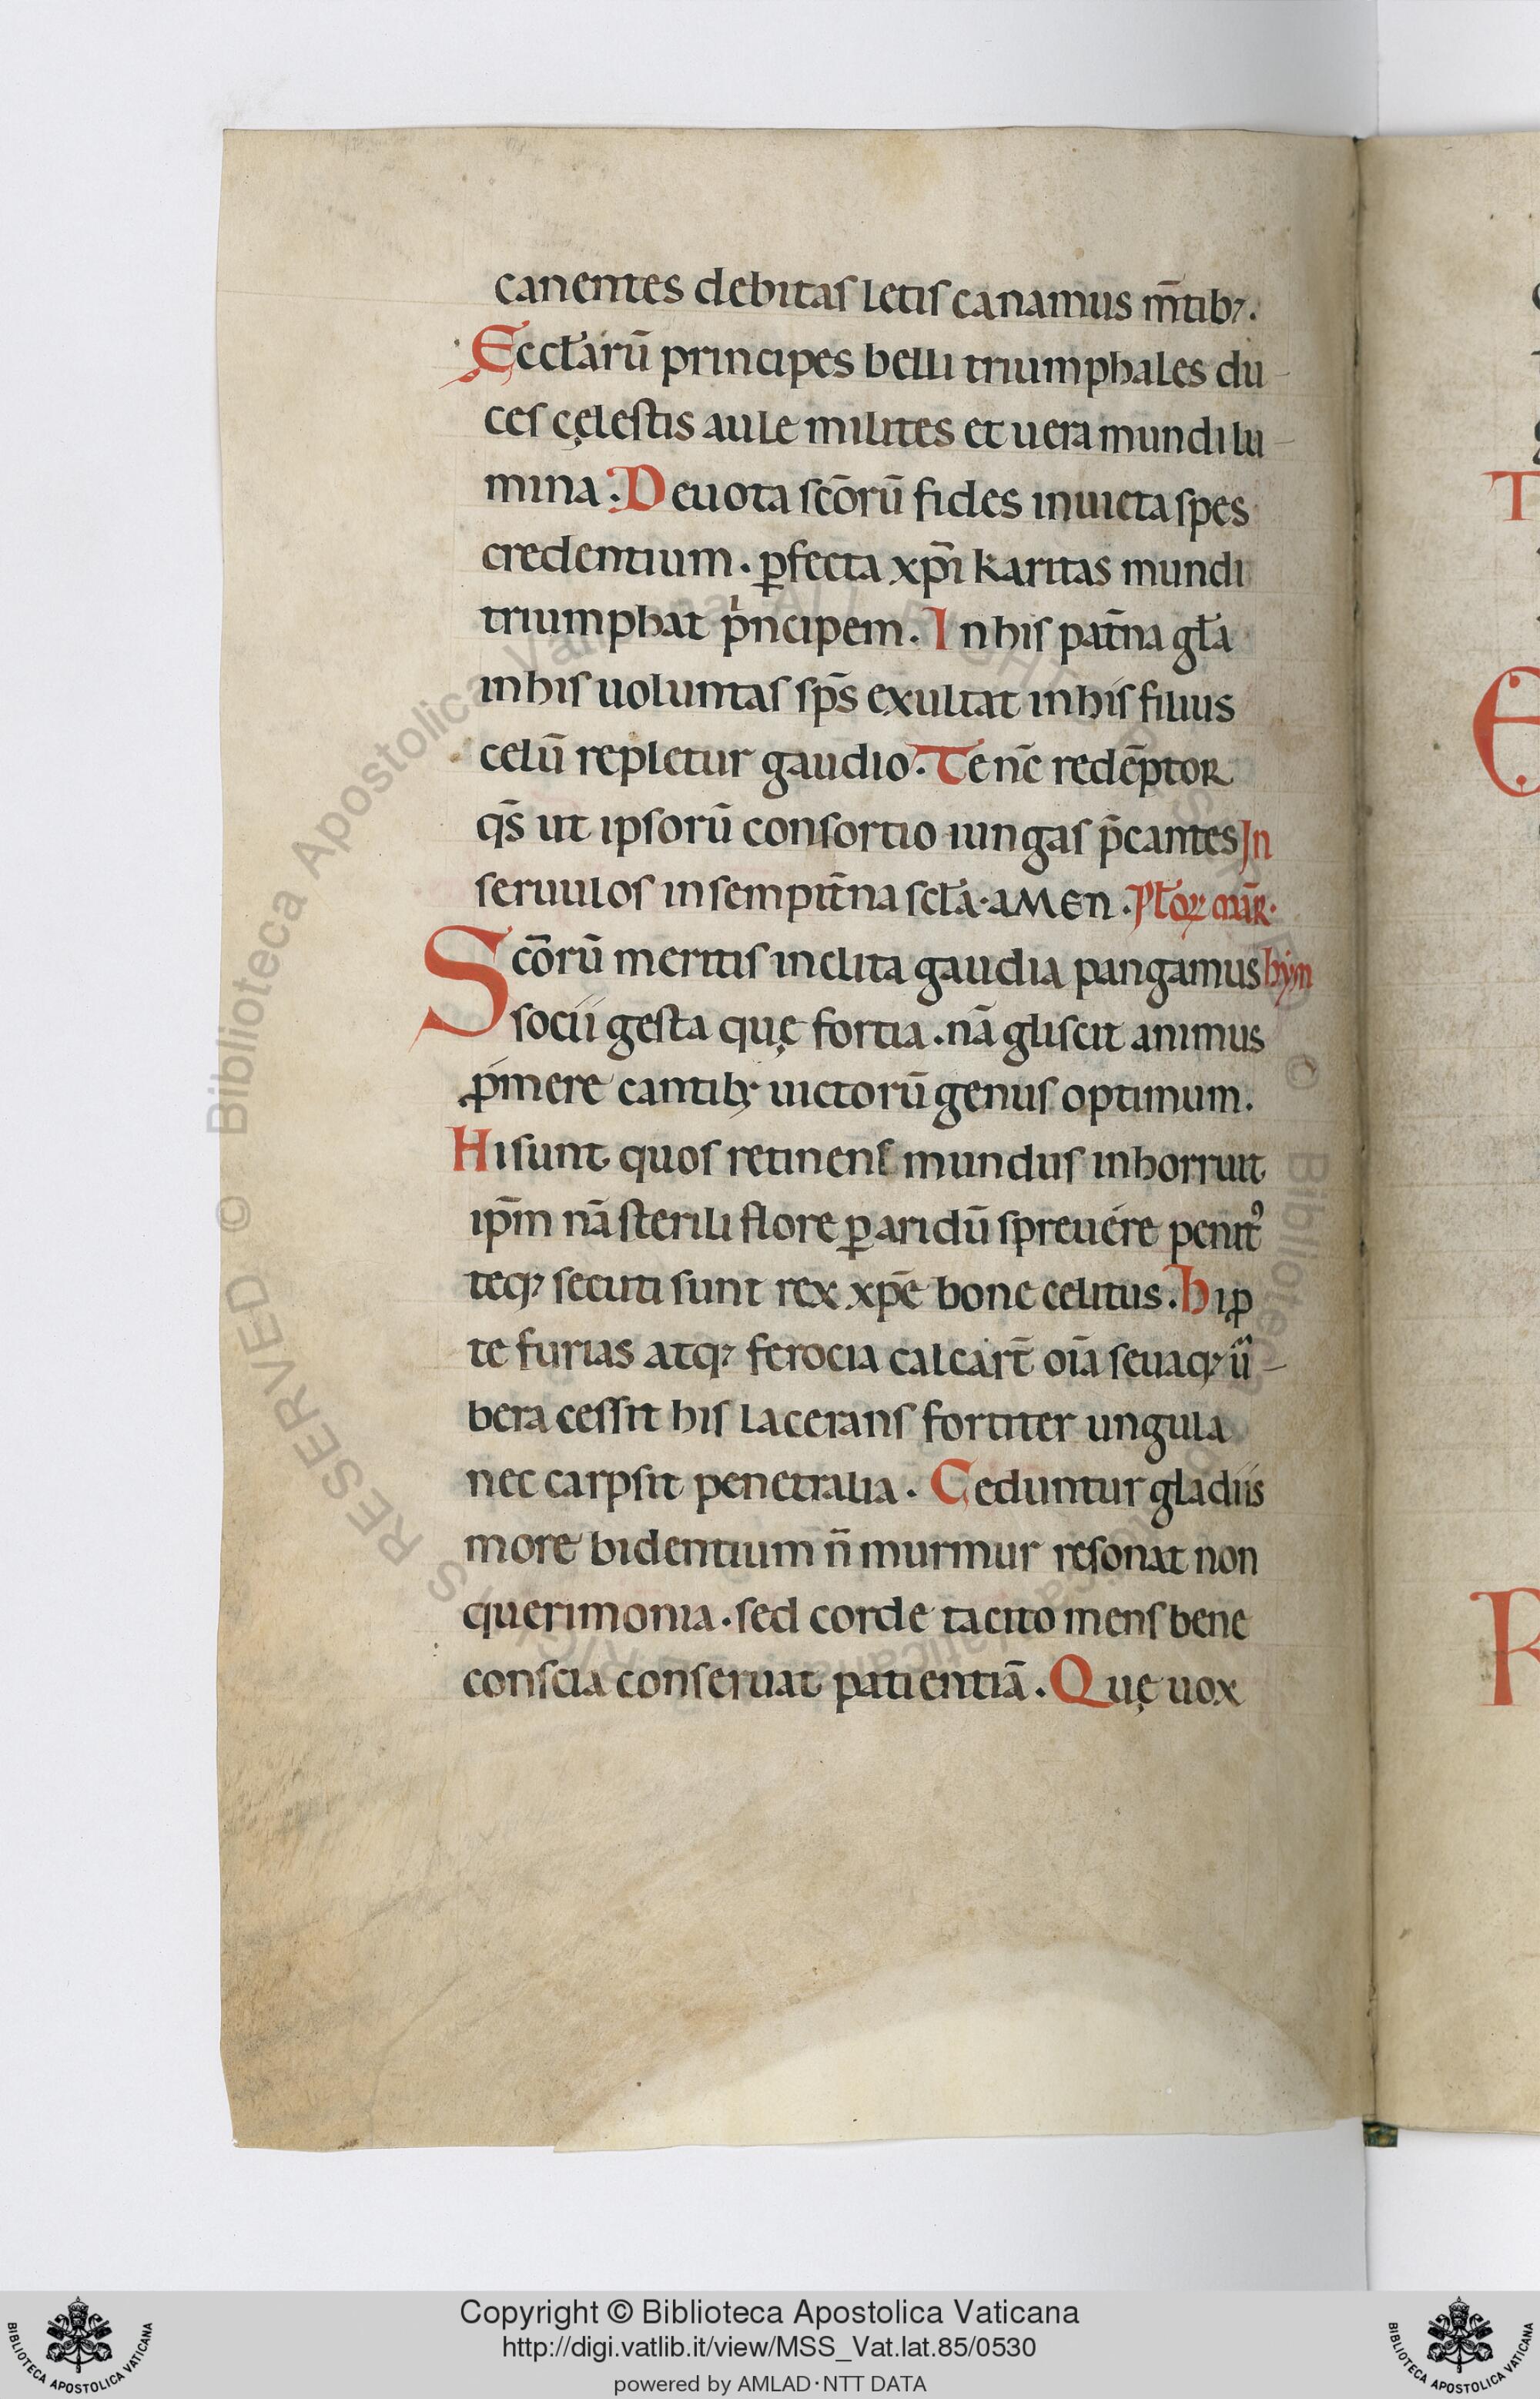 canentes debitas letis canamus m̄tib⁊.
Eccl̄arū principes belli triumphales du-
ces cęlestis aule milites et uera mundi lu-
mina. Deuota sc̄orū fides inuicta spes
credentium. ꝑfecta xp̄i karitas mundi
triumphat pͥncipem. In his pat̄na gl̄a
in his uoluntas sp̄s exultat in his filius
celū repletur gaudio. Te nc̄ redēptor
qs̄ ut ipsorū consortio iungas p̄cantes
seruulos in sempit̄na scl̄a. aMEN. Pl̄oꝝ mār.
In hym
Sc̄orū meritis inclita gaudia pangamus
socii gesta quę fortia. nā gliscit animus
ꝓmere cantib; uictorū genus optimum.
Hi sunt quos retinens mundus inhorruit
ip̄m nā sterili flore ꝑaridū spreuére penitꝰ
teq⁊ secuti sunt rex xp̄e bone celitus. hi ꝓ
te furias atq⁊ ferocia calcart̄ oīa seuaq⁊ ū-
bera cessit his lacerans fortiter ungula
nec carpsit penetralia. Ceduntur gladiis
more bidentium n̄ murmur resonat non
querimonia. sed corde tacito mens bene
conscia conseruat patientiā. Quę uox
Copyright © Biblioteca Apostolica Vaticana
http://digi.vatlib.it/view/MSS_Vat.lat.85/0530
powered by AMLAD·NTT DATA
BIBLIOTECA APOSTOLICA VATICANA
BIBLIOTECA APOSTOLICA VATICANA